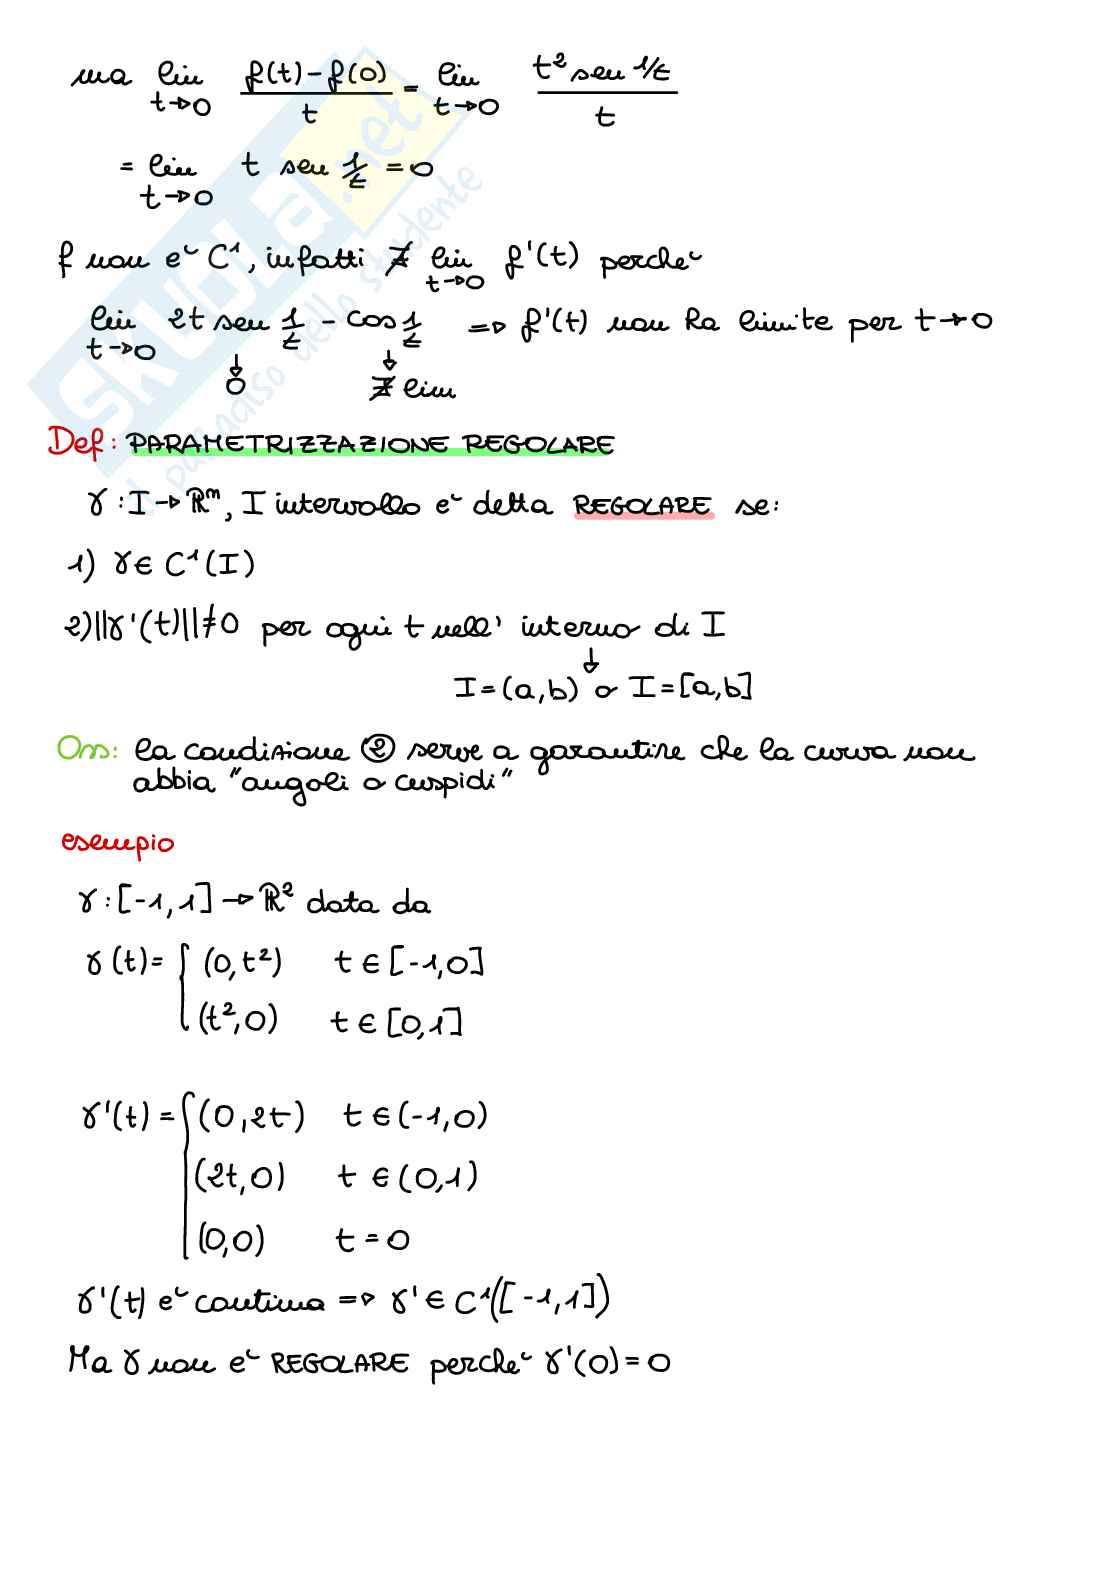 ma lim t→0 f(t)-f(0) / t = lim t→0 t² sen 1/t / t
= lim t→0 t sen 1/t = 0
f non e' C¹, infatti ∄ lim t→0 f'(t) perche'
lim t→0 2t sen 1/t - cos 1/t => f'(t) non ha limite per t→0
↓ 0 ↓ ∄ lim
Def: PARAMETRIZZAZIONE REGOLARE
γ: I→ℝⁿ, I intervallo e' detta REGOLARE se:
1) γ∈ C¹(I)
2) ||γ'(t)||≠0 per ogni t nell' interno di I
↓
I=(a,b) o I=[a,b]
Oss: la condizione ② serve a garantire che la curva non
abbia "angoli o cuspidi"
esempio
γ: [-1,1] → ℝ² data da
γ(t)= { (0,t²) t∈[-1,0]
(t²,0) t∈[0,1]
γ'(t)= { (0,2t) t∈(-1,0)
(2t,0) t∈(0,1)
(0,0) t=0
γ'(t) e' continua => γ'∈ C¹([-1,1])
Ma γ non e' REGOLARE perche' γ'(0)=0
SKUOLA.net
il paradiso dello studente